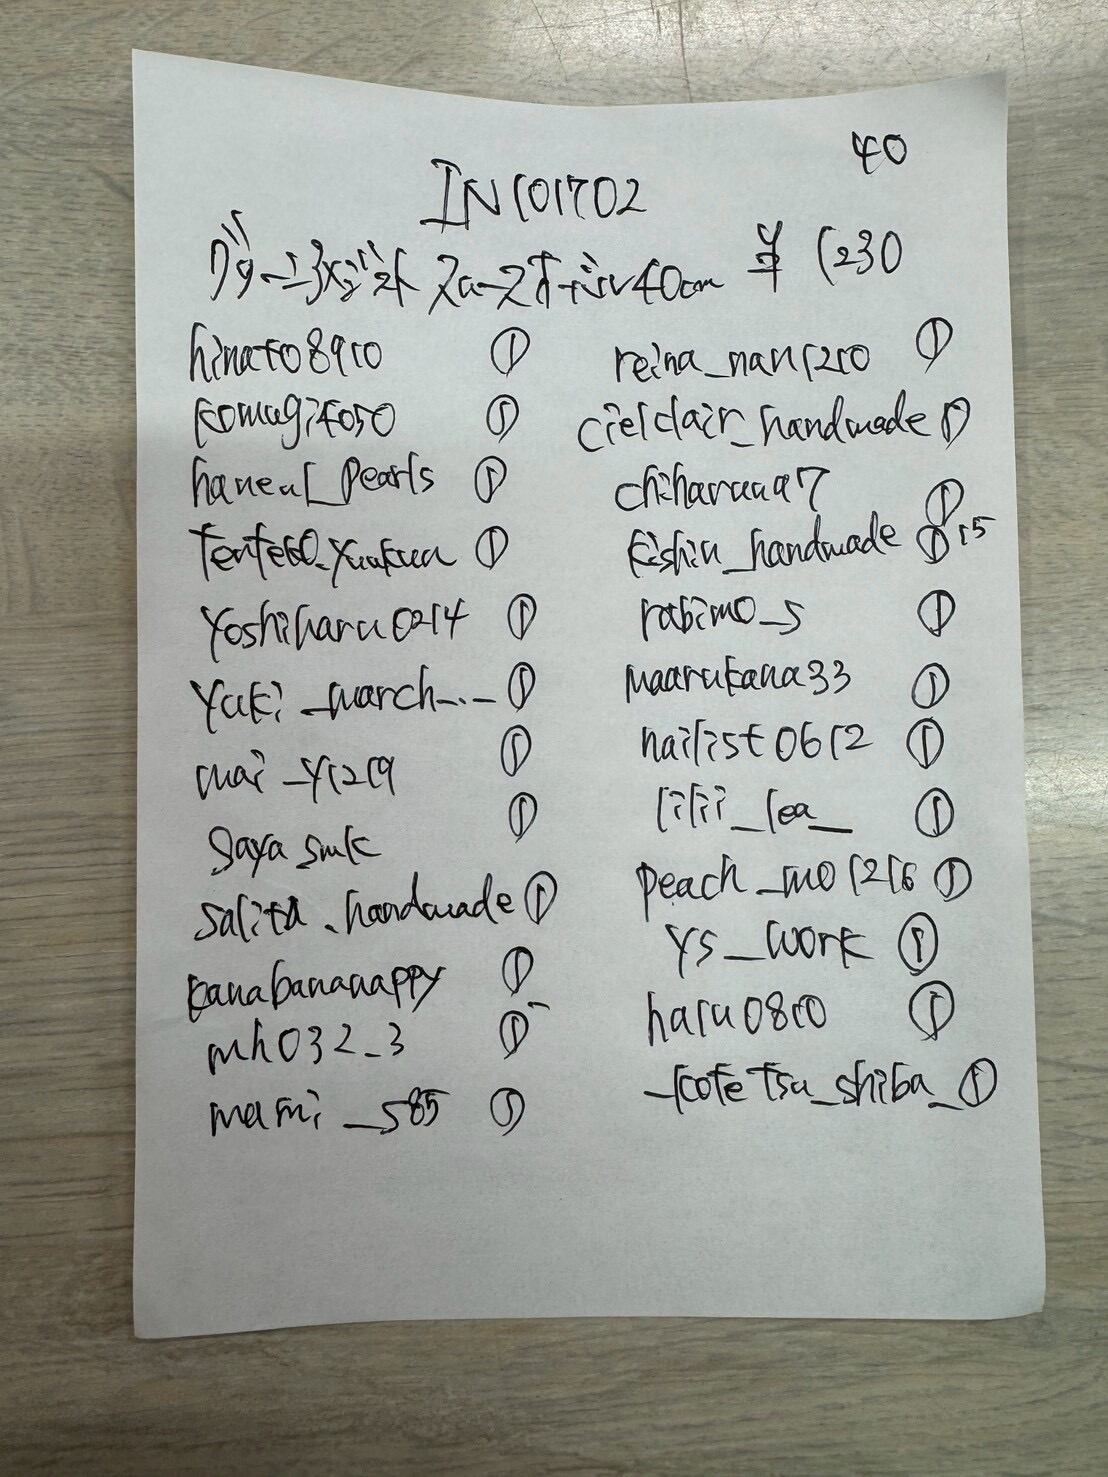 40
IN101702
40cm ¥1230
hinato8910 ①
komugi4050 ①
haneul_pearls ①
tenteko_yuukun ①
yoshiharu0214 ①
yuki_march_._ ①
mai_y1219 ①
saya smk ①
salita.handmade ①
kanabananappy ①
mh032_3 ①
mami_s85 ①
reina_nan1210 ①
cielclair_handmade ①
chiharuua97 ①
kishiu_handmade ① 15
rabimo_s ①
maarukana33 ①
nailist0612 ①
lilii_lea_ ①
peach_mo1216 ①
ys_work ①
haru0810 ①
_kotetsu_shiba_ ①